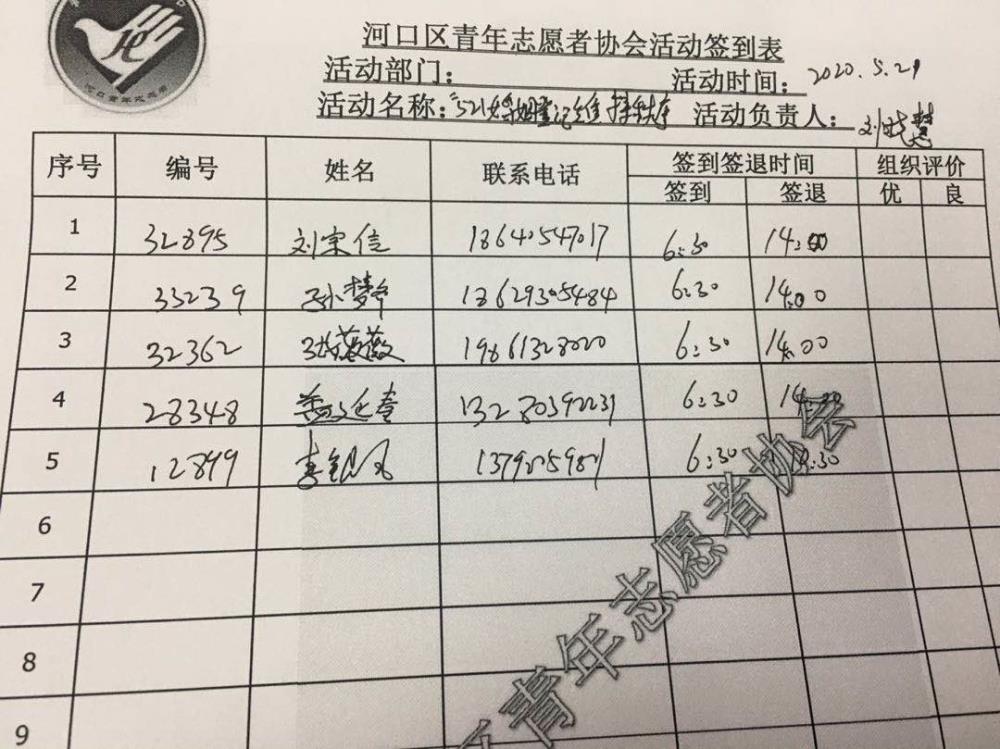 河口区青年志愿者协会活动签到表
活动部门： 活动时间：2020.5.21
活动名称："521婚姻登记 维持秩序 活动负责人：刘晓慧
序号 编号 姓名 联系电话 签到签退时间 组织评价
签到 签退 优 良
1 32895 刘宗信 18640547017 6:30 14:00
2 33239 孙梦 6:30 14:00
3 32362 张薇薇 19861328020 6:30 14:00
4 28348 13280392231 6:30
5 12899 李银凤 6:30
6
7
8
9
青年志愿者协会